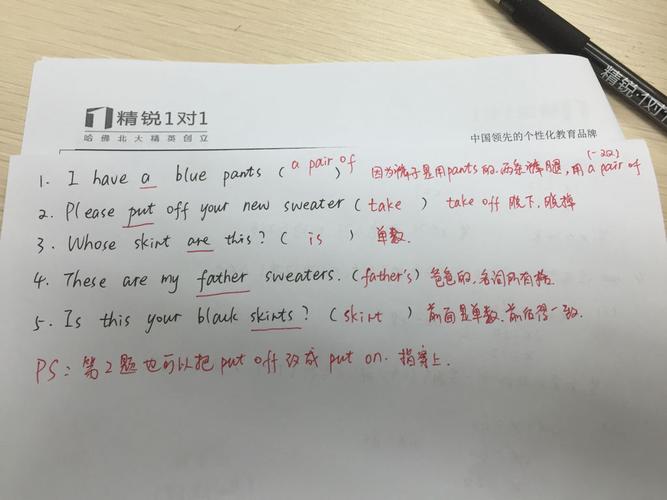 精锐1对1
哈佛北大精英创立
中国领先的个性化教育品牌
精锐·1对1
1. I have a blue pants (a pair of) 因为裤子是用pants的,两条裤腿,用a pair of (一双)
2. Please put off your new sweater (take) take off 脱下,脱掉
3. Whose skirt are this? (is) 单数.
4. These are my father sweaters. (father's) 爸爸的,名词所有格.
5. Is this your black skirts? (skirt) 前面是单数,前后得一致.
PS: 第2题也可以把put off改成put on. 指穿上.